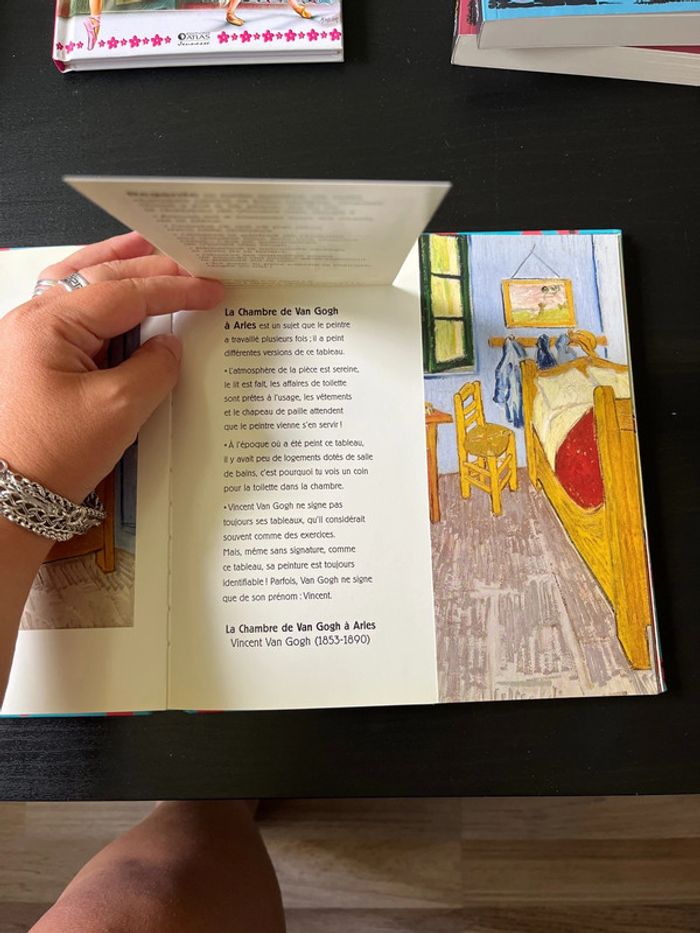 ATLAS
Jeunesse
La Chambre de Van Gogh
à Arles est un sujet que le peintre
a travaillé plusieurs fois ; il a peint
différentes versions de ce tableau.
• L'atmosphère de la pièce est sereine,
le lit est fait, les affaires de toilette
sont prêtes à l'usage, les vêtements
et le chapeau de paille attendent
que le peintre vienne s'en servir !
• À l'époque où a été peint ce tableau,
il y avait peu de logements dotés de salle
de bains, c'est pourquoi tu vois un coin
pour la toilette dans la chambre.
• Vincent Van Gogh ne signe pas
toujours ses tableaux, qu'il considérait
souvent comme des exercices.
Mais, même sans signature, comme
ce tableau, sa peinture est toujours
identifiable ! Parfois, Van Gogh ne signe
que de son prénom : Vincent.
La Chambre de Van Gogh à Arles
Vincent Van Gogh (1853-1890)